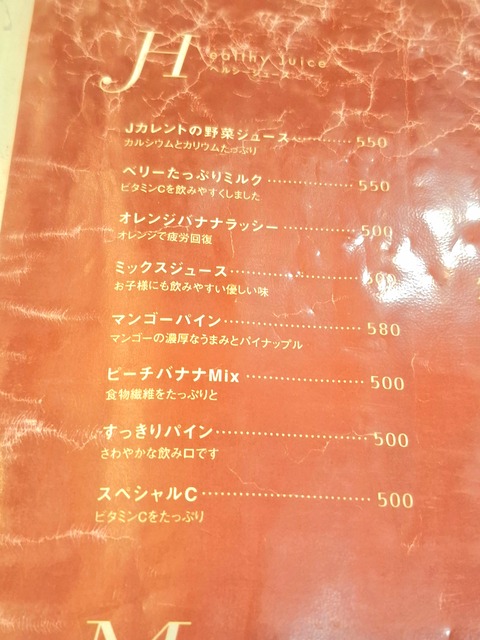 Healthy Juice
ヘルシージュース
Jカレントの野菜ジュース 550
カルシウムとカリウムたっぷり
ベリーたっぷりミルク 550
ビタミンCを飲みやすくしました
オレンジバナナラッシー 500
オレンジで疲労回復
ミックスジュース
お子様にも飲みやすい優しい味
マンゴーパイン 580
マンゴーの濃厚なうまみとパイナップル
ピーチバナナMix 500
食物繊維をたっぷりと
すっきりパイン 500
さわやかな飲み口です
スペシャルC 500
ビタミンCをたっぷり
M